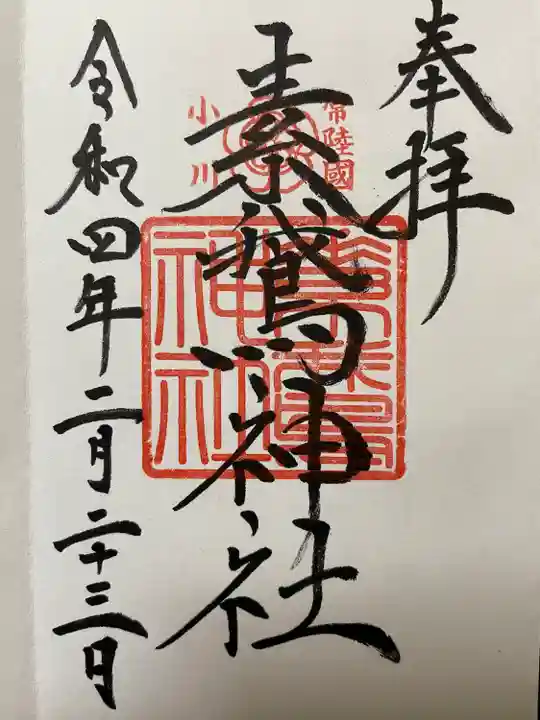 奉拝
常陸國
小川
素鵞神社
素鵞
神社
令和四年二月二十三日